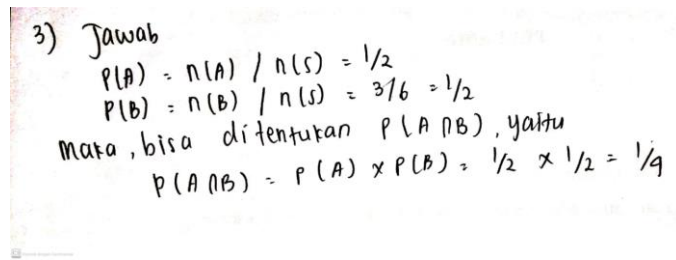 3) Jawab
P(A) = n(A) / n(S) = 1/2
P(B) = n(B) / n(S) = 3/6 = 1/2
Maka, bisa ditentukan P(A∩B), yaitu
P(A∩B) = P(A) x P(B) = 1/2 x 1/2 = 1/4